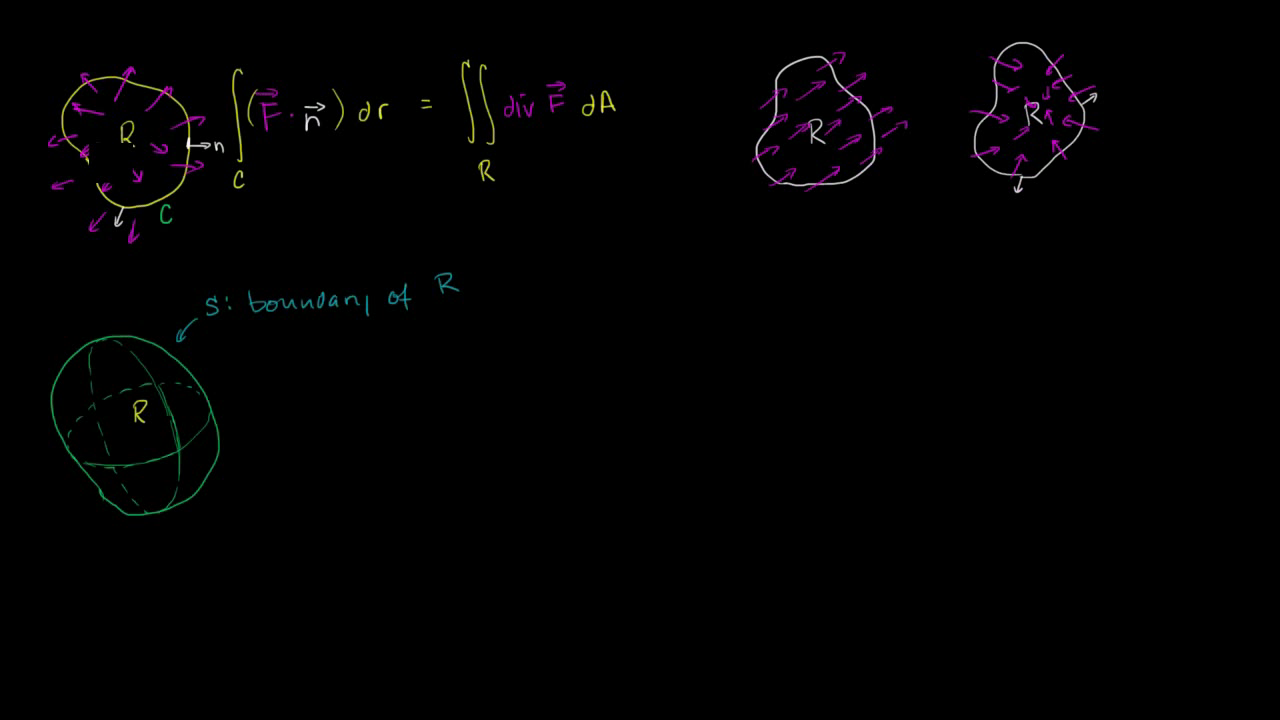 R n ∫_C (F⃗ · n⃗) dr = ∬_R div F⃗ dA
C
R
R
S: boundary of R
R